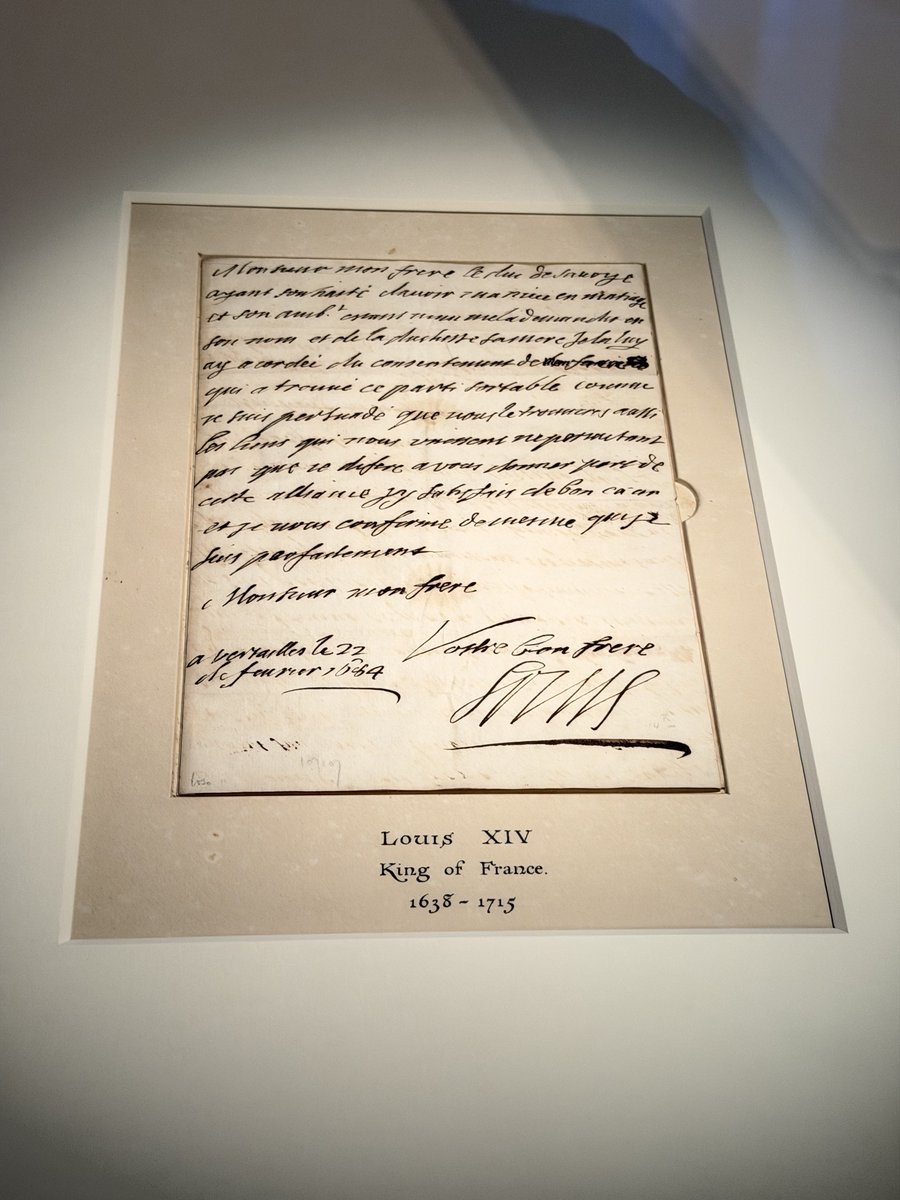 Monsieur mon frere le duc de savoye
ayant souhaité davoir ma niece en mariage
et son amb.r estant venu me la demander en
son nom et de la duchesse sa mere Je la luy
ay acordée du consentement de mon frere
qui a trouvé ce parti sortable comme
je suis persuadé que vous le trouveres aussi
les liens qui nous unissent ne permettant
pas que je difere a vous donner part de
cette alliance jy satisfais de bon cœur
et je vous confirme de mesme que je
suis parfaitement
Monsieur mon frere
a versailles le 22
de fevrier 1684
Vostre bon frere
Louis
Louis XIV
King of France.
1638 - 1715